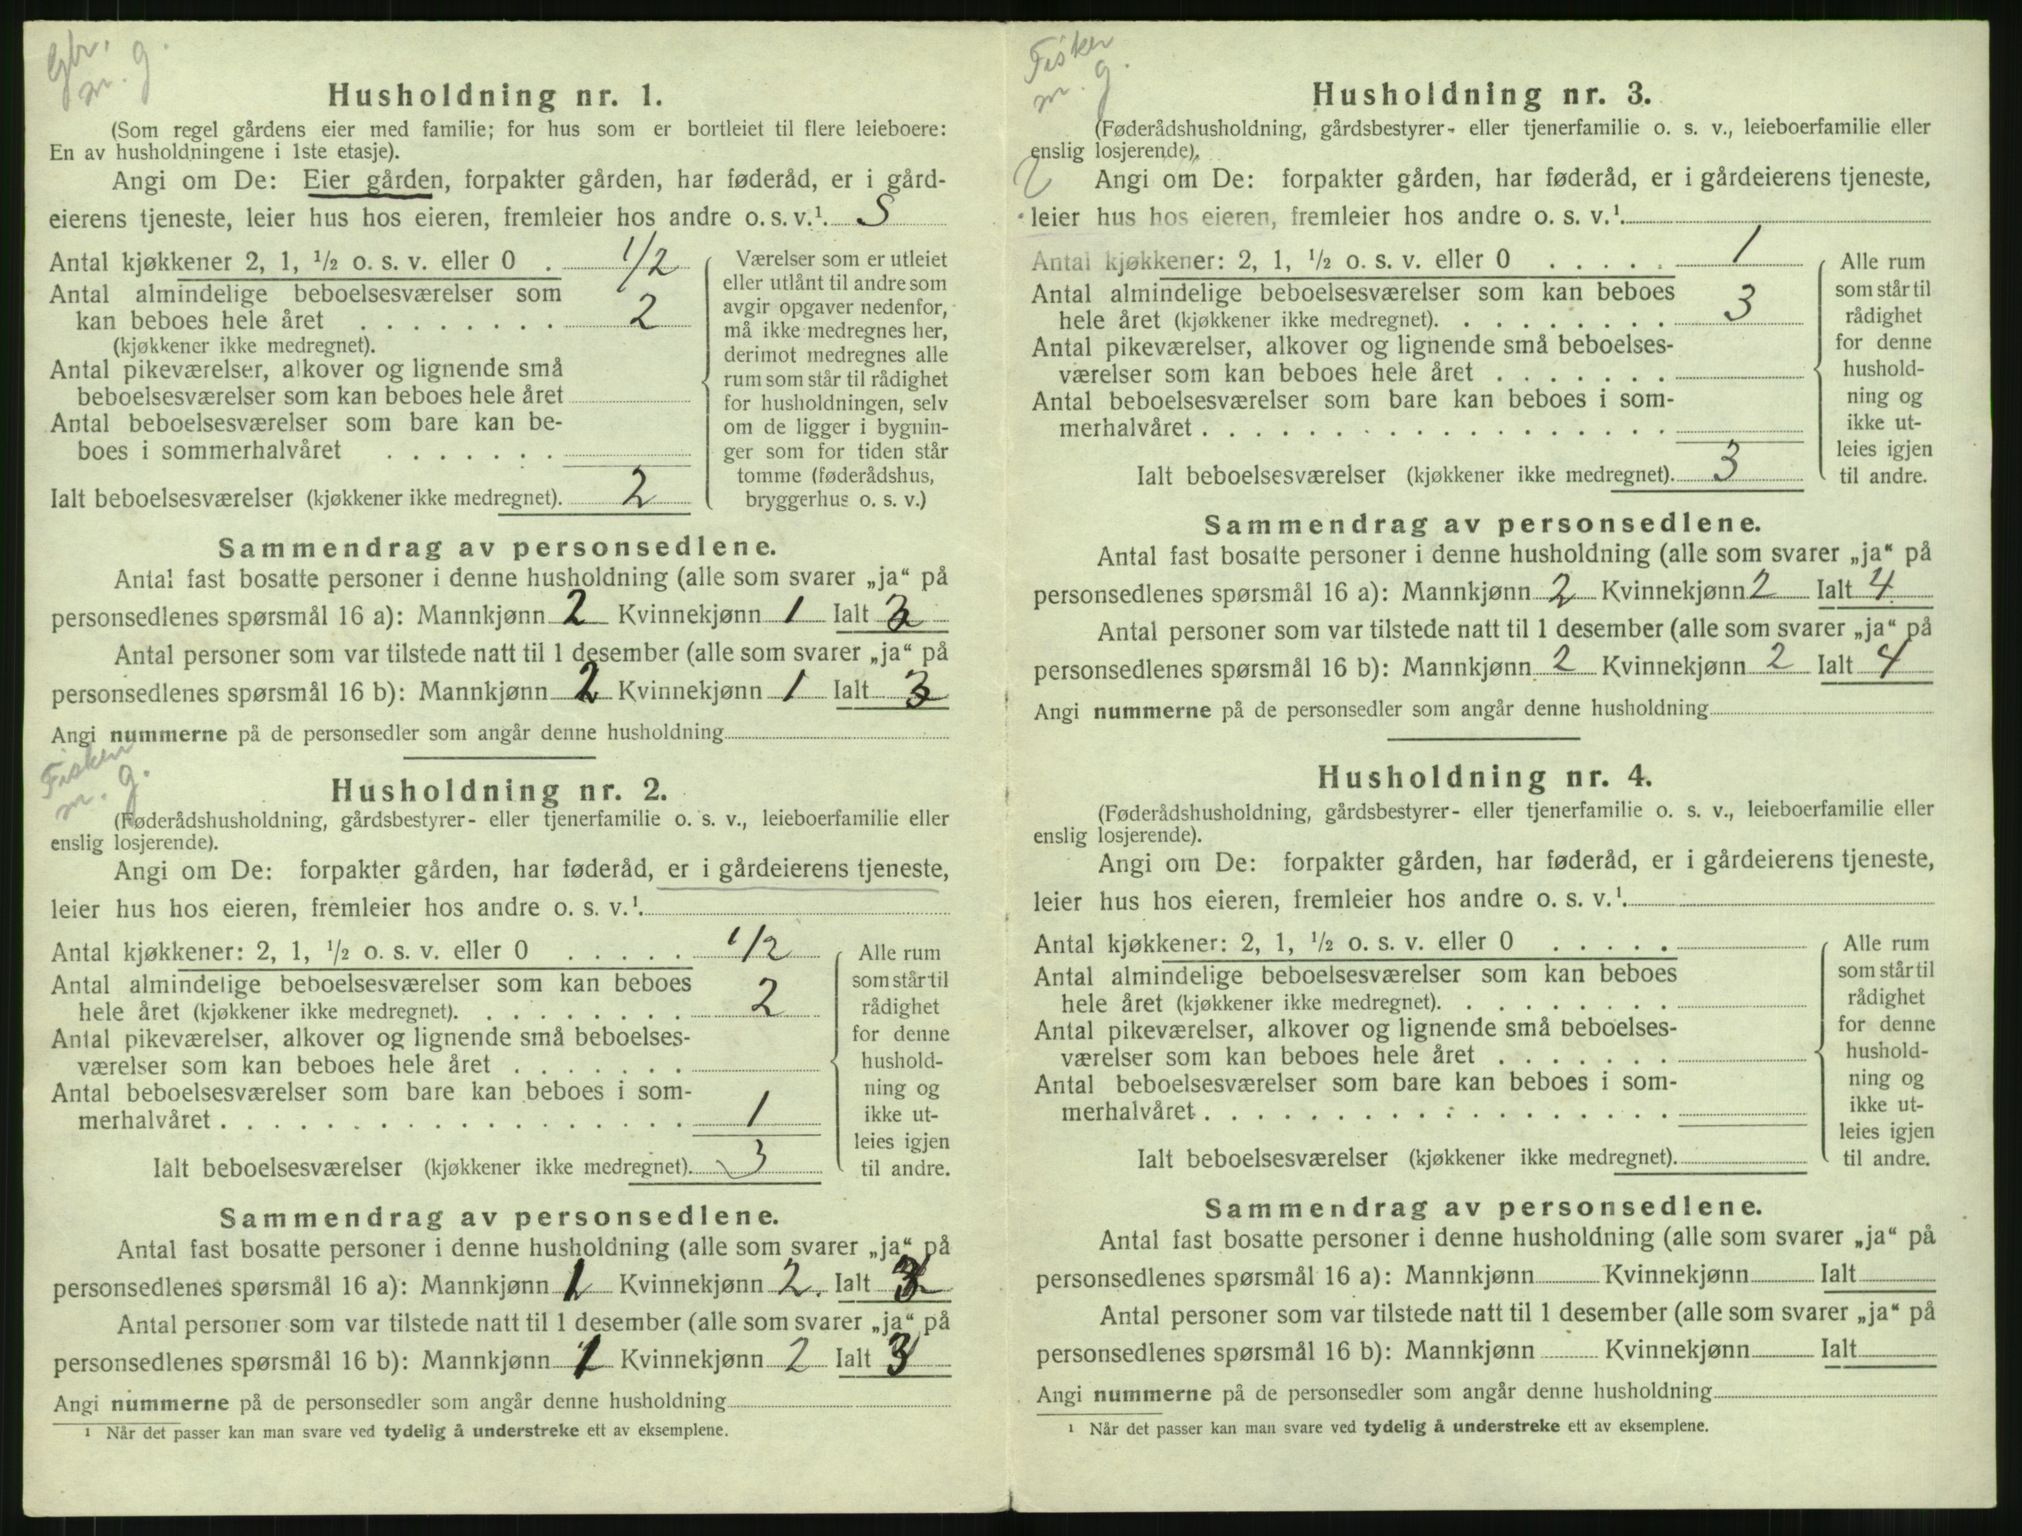 Gbr.
m. g.
Husholdning nr. 1.
(Som regel gårdens eier med familie; for hus som er bortleiet til flere leieboere:
En av husholdningene i 1ste etasje).
Angi om De: Eier gården, forpakter gården, har føderåd, er i gård-
eierens tjeneste, leier hus hos eieren, fremleier hos andre o. s. v.¹. S
Antal kjøkkener 2, 1, ½ o. s. v. eller 0 . 1/2
Antal almindelige beboelsesværelser som
kan beboes hele året . . . . . . . . 2
(kjøkkener ikke medregnet).
Antal pikeværelser, alkover og lignende små
beboelsesværelser som kan beboes hele året
Antal beboelsesværelser som bare kan be-
boes i sommerhalvåret . . . . . . .
Ialt beboelsesværelser (kjøkkener ikke medregnet). 2
Værelser som er utleiet
eller utlånt til andre som
avgir opgaver nedenfor,
må ikke medregnes her,
derimot medregnes alle
rum som står til rådighet
for husholdningen, selv
om de ligger i bygnin-
ger som for tiden står
tomme (føderådshus,
bryggerhus o. s. v.)
Sammendrag av personsedlene.
Antal fast bosatte personer i denne husholdning (alle som svarer „ja“ på
personsedlenes spørsmål 16 a): Mannkjønn 2 Kvinnekjønn 1 Ialt 3
Antal personer som var tilstede natt til 1 desember (alle som svarer „ja“ på
personsedlenes spørsmål 16 b): Mannkjønn 2 Kvinnekjønn 1 Ialt 3
Angi nummerne på de personsedler som angår denne husholdning
Fisker
m. g.
Husholdning nr. 2.
(Føderådshusholdning, gårdsbestyrer- eller tjenerfamilie o. s. v., leieboerfamilie eller
enslig losjerende).
Angi om De: forpakter gården, har føderåd, er i gårdeierens tjeneste,
leier hus hos eieren, fremleier hos andre o. s. v.¹.
Antal kjøkkener: 2, 1, ½ o. s. v. eller 0 . . . . . 1/2
Antal almindelige beboelsesværelser som kan beboes
hele året (kjøkkener ikke medregnet). . . . . . . . . 2
Antal pikeværelser, alkover og lignende små beboelses-
værelser som kan beboes hele året . . . . . . .
Antal beboelsesværelser som bare kan beboes i som-
merhalvåret . . . . . . . . . . . . . . . . . . 1
Ialt beboelsesværelser (kjøkkener ikke medregnet). 3
Alle rum
som står til
rådighet
for denne
hushold-
ning og
ikke ut-
leies igjen
til andre.
Sammendrag av personsedlene.
Antal fast bosatte personer i denne husholdning (alle som svarer „ja“ på
personsedlenes spørsmål 16 a): Mannkjønn 1 Kvinnekjønn 2. Ialt 3
Antal personer som var tilstede natt til 1 desember (alle som svarer „ja“ på
personsedlenes spørsmål 16 b): Mannkjønn 1 Kvinnekjønn 2 Ialt 3
Angi nummerne på de personsedler som angår denne husholdning
¹ Når det passer kan man svare ved tydelig å understreke ett av eksemplene.
Fisker
m. g.
Husholdning nr. 3.
(Føderådshusholdning, gårdsbestyrer- eller tjenerfamilie o. s. v., leieboerfamilie eller
enslig losjerende).
Angi om De: forpakter gården, har føderåd, er i gårdeierens tjeneste,
leier hus hos eieren, fremleier hos andre o. s. v.¹.
Antal kjøkkener: 2, 1, ½ o. s. v. eller 0 . . . . . 1
Antal almindelige beboelsesværelser som kan beboes
hele året (kjøkkener ikke medregnet). . . . . . . . . 3
Antal pikeværelser, alkover og lignende små beboelses-
værelser som kan beboes hele året . . . . . . .
Antal beboelsesværelser som bare kan beboes i som-
merhalvåret . . . . . . . . . . . . . . . . . .
Ialt beboelsesværelser (kjøkkener ikke medregnet). 3
Alle rum
som står til
rådighet
for denne
hushold-
ning og
ikke ut-
leies igjen
til andre.
Sammendrag av personsedlene.
Antal fast bosatte personer i denne husholdning (alle som svarer „ja“ på
personsedlenes spørsmål 16 a): Mannkjønn 2 Kvinnekjønn 2 Ialt 4
Antal personer som var tilstede natt til 1 desember (alle som svarer „ja“ på
personsedlenes spørsmål 16 b): Mannkjønn 2 Kvinnekjønn 2 Ialt 4
Angi nummerne på de personsedler som angår denne husholdning
Husholdning nr. 4.
(Føderådshusholdning, gårdsbestyrer- eller tjenerfamilie o. s. v., leieboerfamilie eller
enslig losjerende).
Angi om De: forpakter gården, har føderåd, er i gårdeierens tjeneste,
leier hus hos eieren, fremleier hos andre o. s. v.¹.
Antal kjøkkener: 2, 1, ½ o. s. v. eller 0 . . . . .
Antal almindelige beboelsesværelser som kan beboes
hele året (kjøkkener ikke medregnet). . . . . . . . .
Antal pikeværelser, alkover og lignende små beboelses-
værelser som kan beboes hele året . . . . . . .
Antal beboelsesværelser som bare kan beboes i som-
merhalvåret . . . . . . . . . . . . . . . . . .
Ialt beboelsesværelser (kjøkkener ikke medregnet).
Alle rum
som står til
rådighet
for denne
hushold-
ning og
ikke ut-
leies igjen
til andre.
Sammendrag av personsedlene.
Antal fast bosatte personer i denne husholdning (alle som svarer „ja“ på
personsedlenes spørsmål 16 a): Mannkjønn Kvinnekjønn Ialt
Antal personer som var tilstede natt til 1 desember (alle som svarer „ja“ på
personsedlenes spørsmål 16 b): Mannkjønn Kvinnekjønn Ialt
Angi nummerne på de personsedler som angår denne husholdning
¹ Når det passer kan man svare ved tydelig å understreke ett av eksemplene.